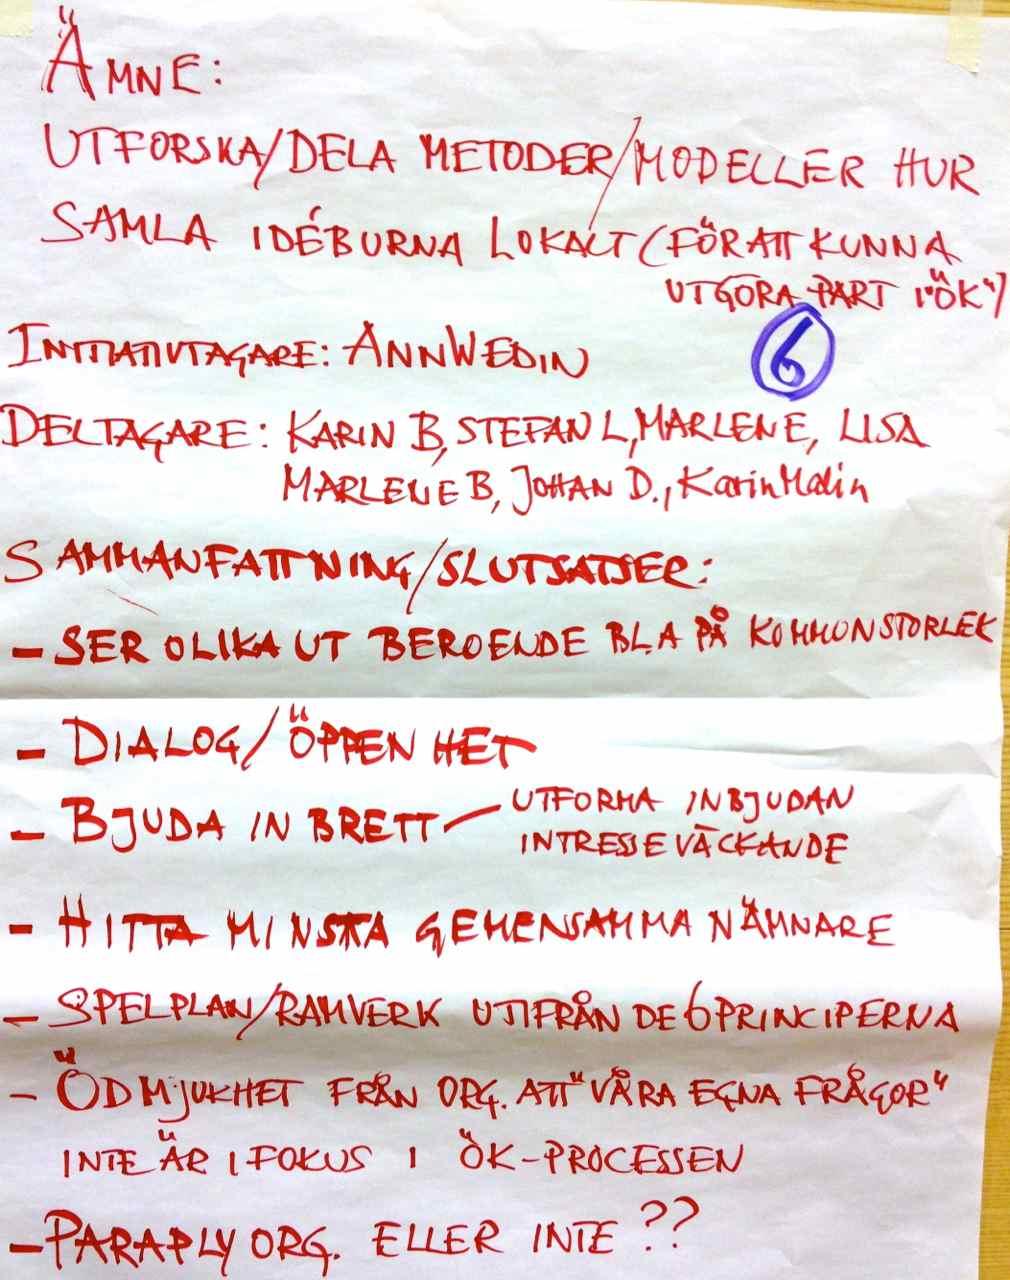 ÄMNE:
UTFORSKA/DELA METODER/MODELLER HUR
SAMLA IDÉBURNA LOKALT (FÖR ATT KUNNA
UTGÖRA PART I "ÖK")
6
INITIATIVTAGARE: ANN WEDIN
DELTAGARE: KARIN B, STEFAN L, MARLENE, LISA
MARLENE B, JOHAN D., Karin Malin
SAMMANFATTNING/SLUTSATSER:
- SER OLIKA UT BEROENDE BL.A PÅ KOMMUNSTORLEK
- DIALOG/ÖPPENHET
- BJUDA IN BRETT - UTFORMA INBJUDAN
INTRESSEVÄCKANDE
- HITTA MINSTA GEMENSAMMA NÄMNARE
- SPELPLAN/RAMVERK UTIFRÅN DE 6 PRINCIPERNA
- ÖDMJUKHET FRÅN ORG. ATT "VÅRA EGNA FRÅGOR"
INTE ÄR I FOKUS I ÖK-PROCESSEN
- PARAPLYORG. ELLER INTE ??